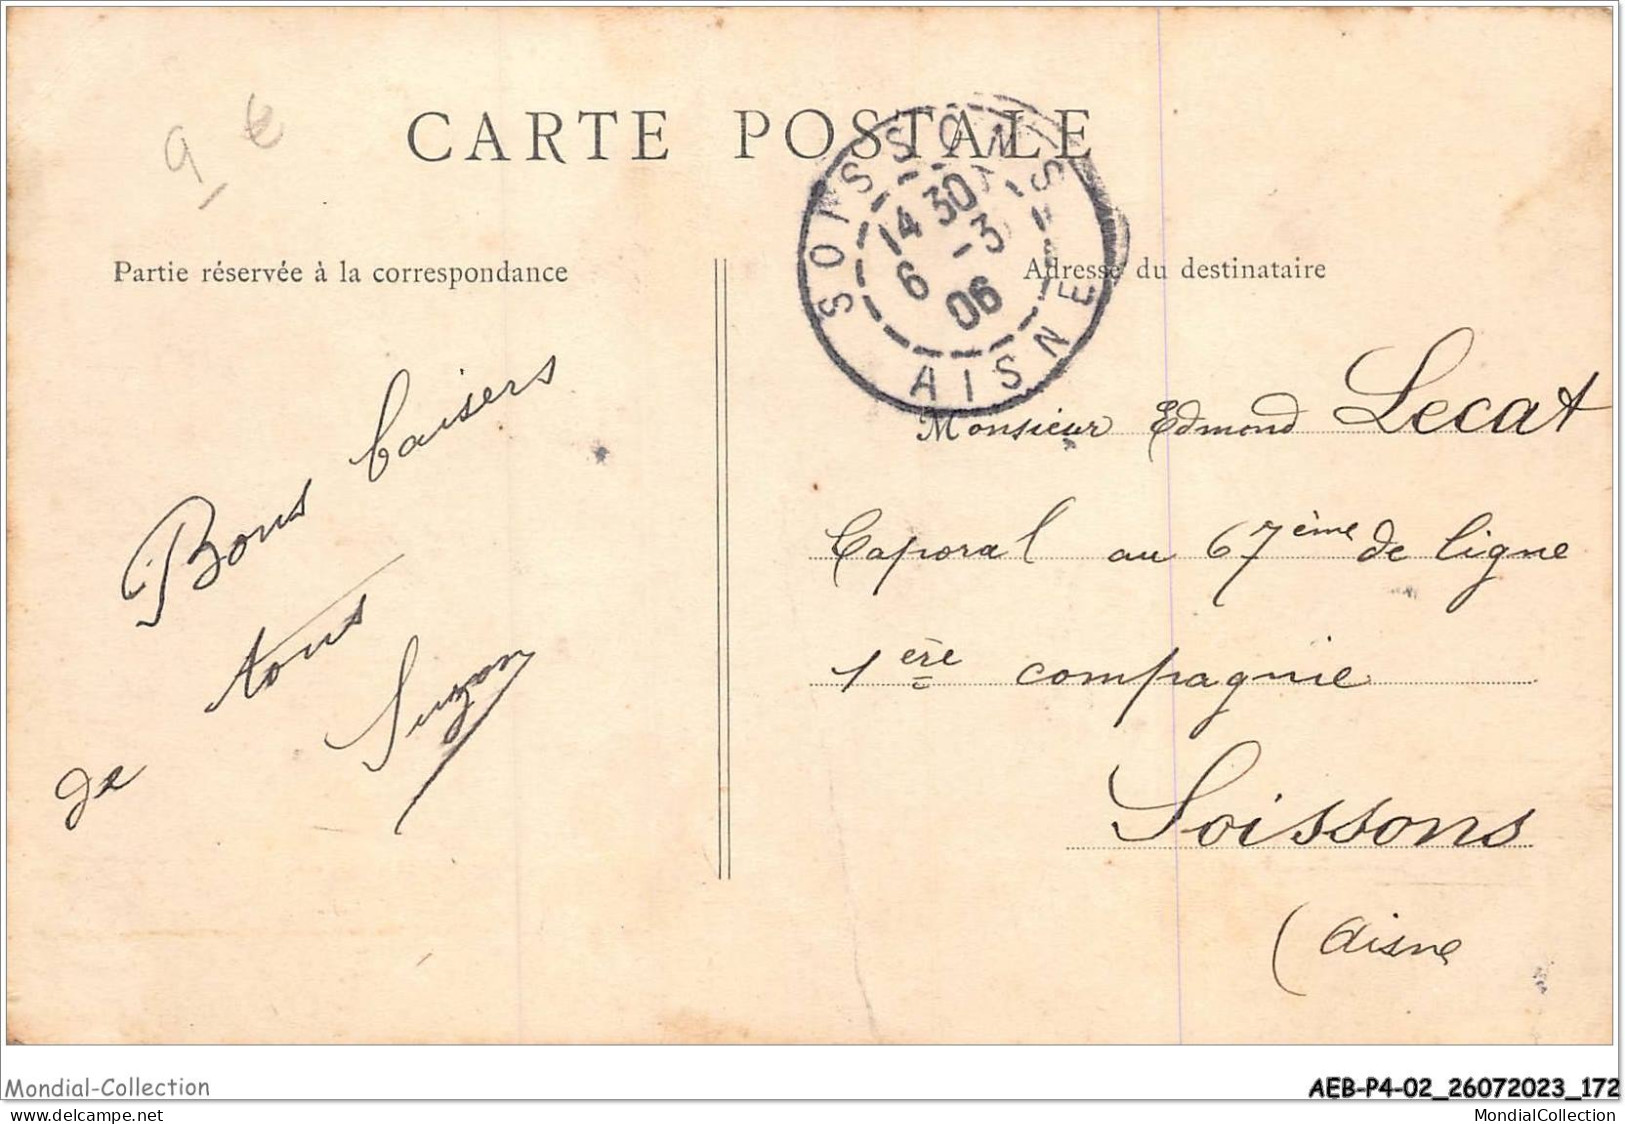 9 €
CARTE POSTALE
SOISSONS
14 30
6 -3
06
AISNE
Partie réservée à la correspondance
Adresse du destinataire
Bons baisers
de tous
Suzon
Monsieur Edmond Lecat
Caporal au 67ème de ligne
1ère compagnie
Soissons
(Aisne
Mondial-Collection
AEB-P4-02_26072023_172
www.delcampe.net
MondialCollection